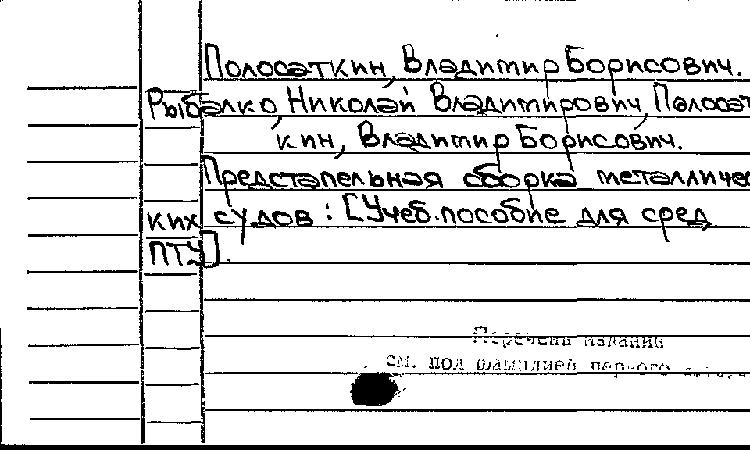 Полосаткин, Владимир Борисович.
Рыбалко, Николай Владимирович, Полосат
кин, Владимир Борисович.
Предстапельная сборка металличес
ких судов : [Учеб. пособие для сред
ПТУ].
Перечень изданий
см. под фамилией первого автора